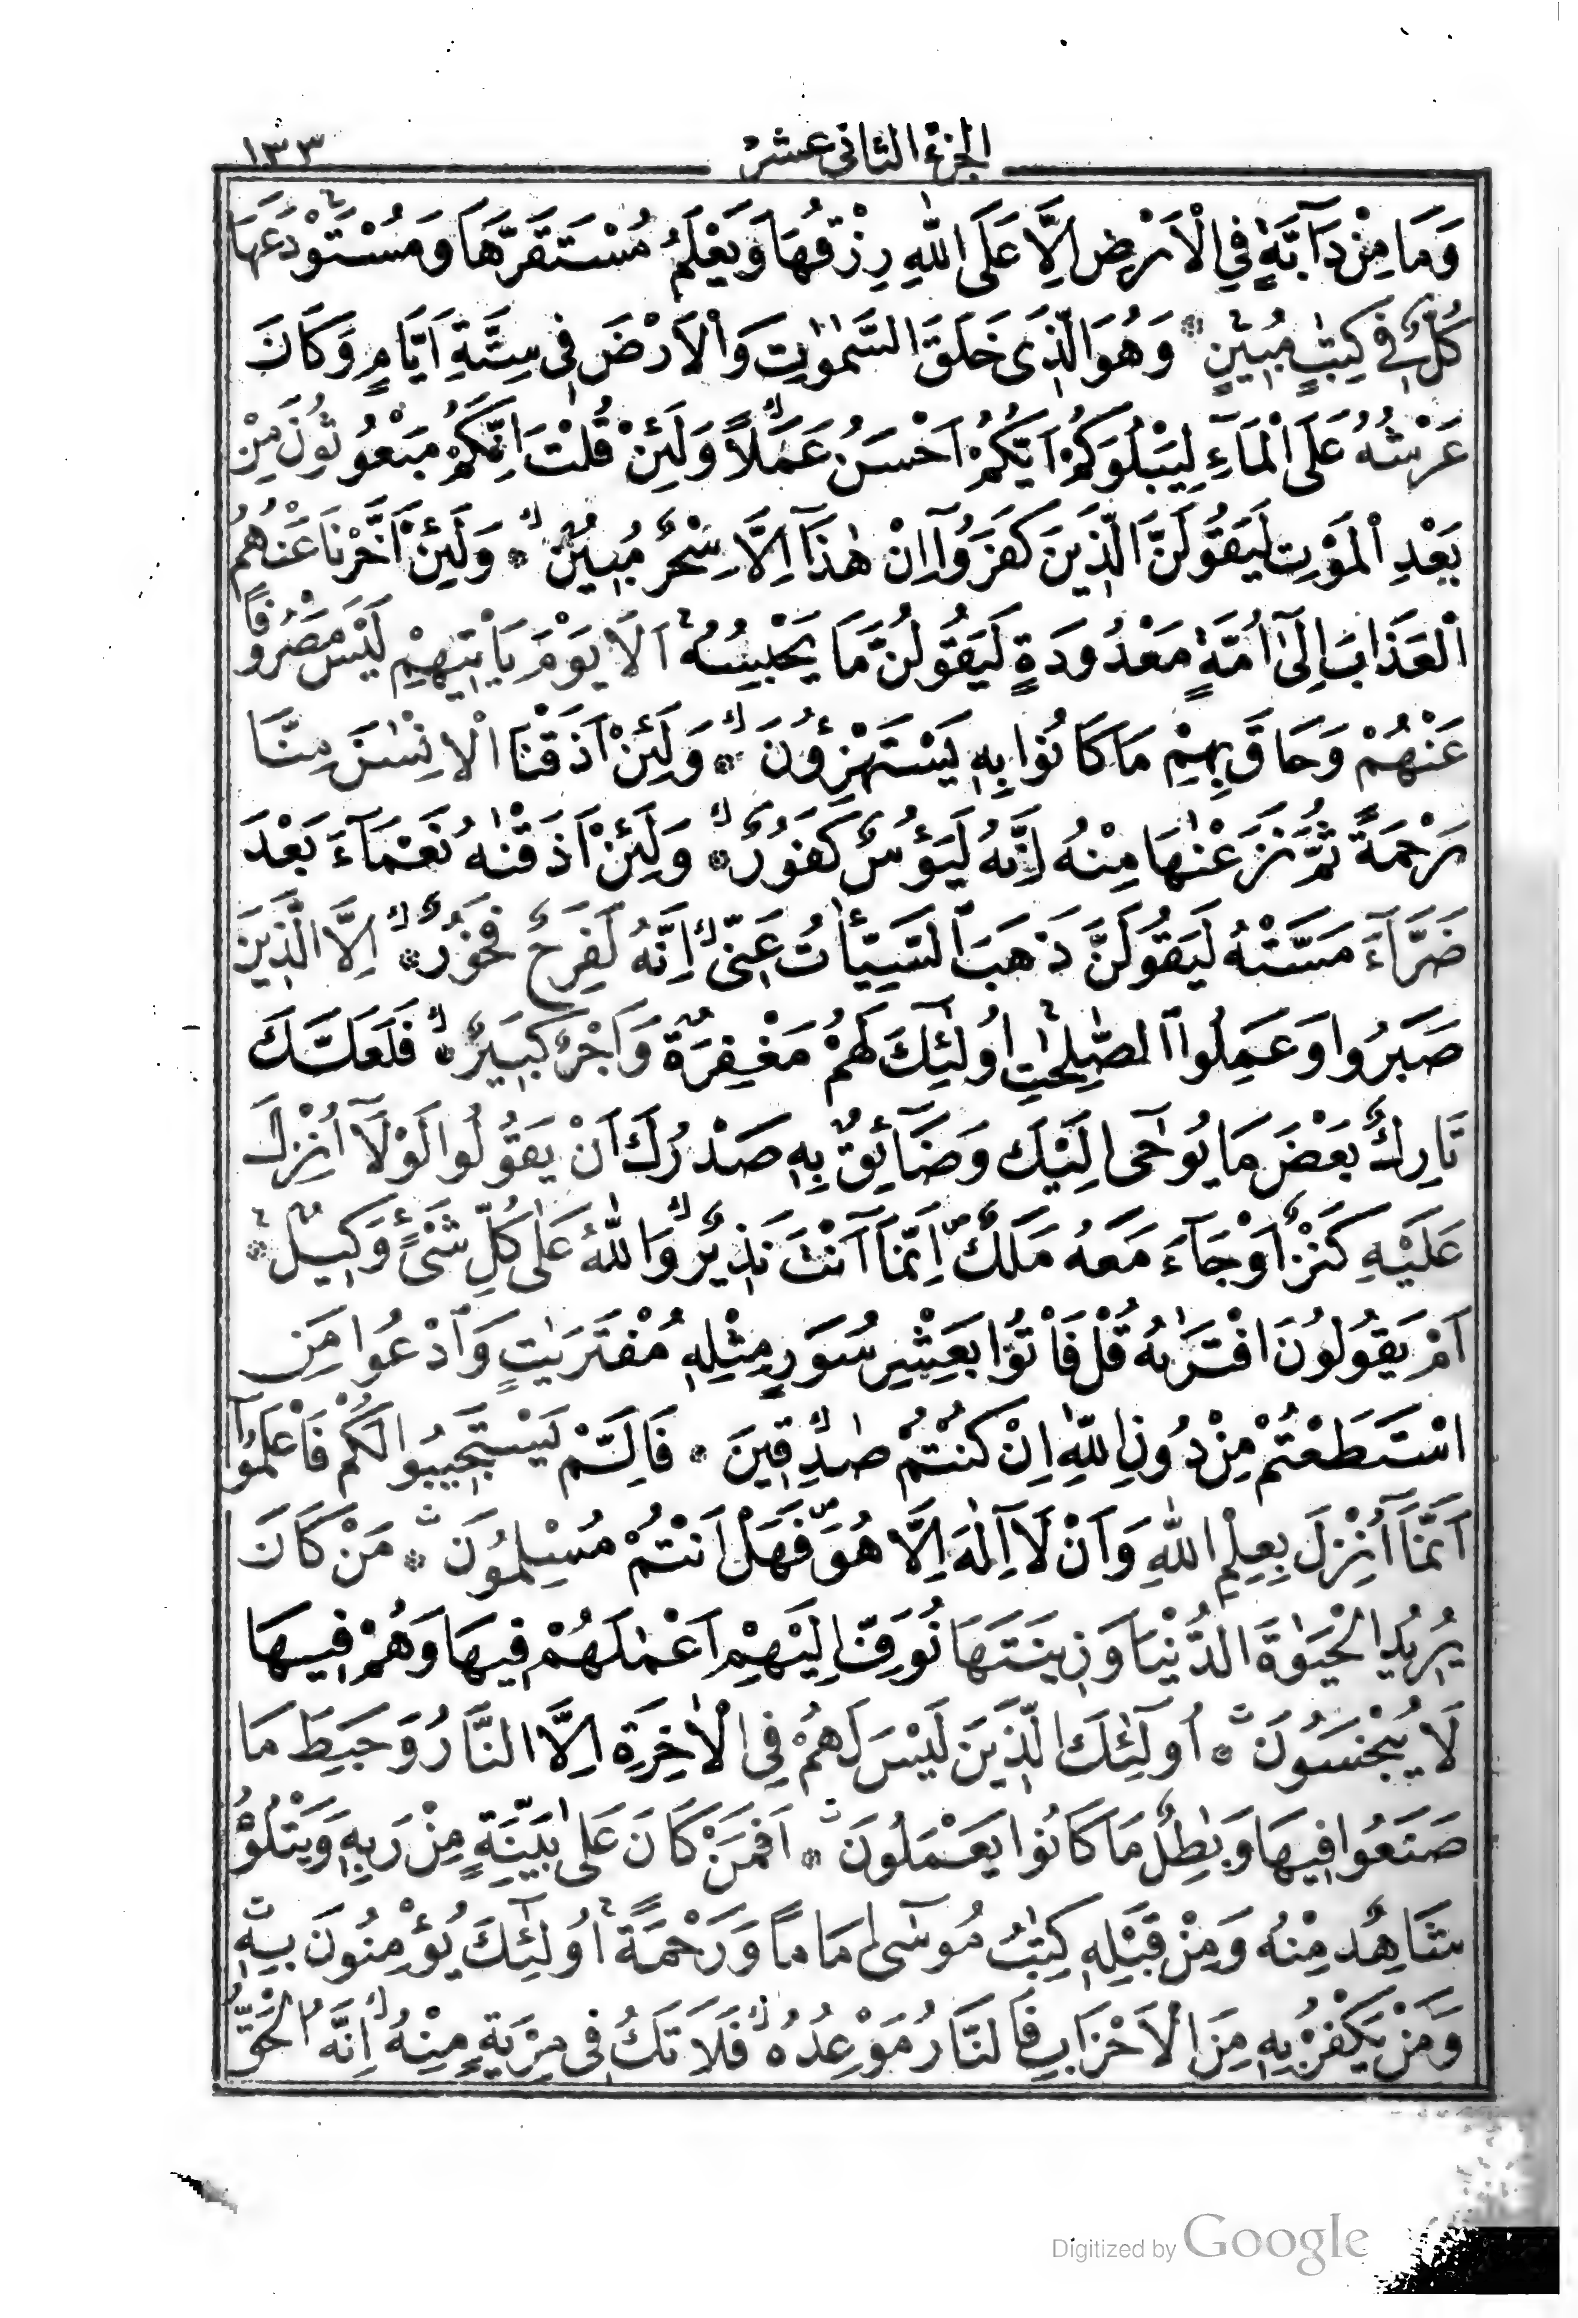 ١٣٣
الجزء الثانى عشر
وَمَا مِنْ دَآبَّةٍ فِي الْاَرْضِ اِلَّا عَلَى اللّٰهِ رِزْقُهَا وَيَعْلَمُ مُسْتَقَرَّهَا وَمُسْتَوْدَعَهَا
كُلٌّ فِي كِتٰبٍ مُبِينٍ ۞ وَهُوَ الَّذِى خَلَقَ السَّمٰوٰتِ وَالْاَرْضَ فِى سِتَّةِ اَيَّامٍ وَكَانَ
عَرْشُهُ عَلَى الْمَآءِ لِيَبْلُوَكُمْ اَيُّكُمْ اَحْسَنُ عَمَلًا وَلَئِنْ قُلْتَ اِنَّكُمْ مَبْعُوثُونَ مِنْ
بَعْدِ الْمَوْتِ لَيَقُولَنَّ الَّذِينَ كَفَرُوآ اِنْ هٰذَآ اِلَّا سِحْرٌ مُبِينٌ ۞ وَلَئِنْ اَخَّرْنَا عَنْهُمُ
الْعَذَابَ اِلٰٓى اُمَّةٍ مَعْدُودَةٍ لَيَقُولُنَّ مَا يَحْبِسُهُ اَلَا يَوْمَ يَاْتِيهِمْ لَيْسَ مَصْرُوفًا
عَنْهُمْ وَحَاقَ بِهِمْ مَا كَانُوا بِهِ يَسْتَهْزِؤُنَ ۞ وَلَئِنْ اَذَقْنَا الْاِنْسٰنَ مِنَّا
رَحْمَةً ثُمَّ نَزَعْنٰهَا مِنْهُ اِنَّهُ لَيَؤُسٌ كَفُورٌ ۞ وَلَئِنْ اَذَقْنٰهُ نَعْمَآءَ بَعْدَ
ضَرَّآءَ مَسَّتْهُ لَيَقُولَنَّ ذَهَبَ السَّيِّاٰتُ عَنِّى اِنَّهُ لَفَرِحٌ فَخُورٌ ۞ اِلَّا الَّذِينَ
صَبَرُوا وَعَمِلُوا الصّٰلِحٰتِ اُولٰٓئِكَ لَهُمْ مَغْفِرَةٌ وَاَجْرٌ كَبِيرٌ ۞ فَلَعَلَّكَ
تَارِكٌ بَعْضَ مَا يُوحٰٓى اِلَيْكَ وَضَآئِقٌ بِهِ صَدْرُكَ اَنْ يَقُولُوا لَوْلَآ اُنْزِلَ
عَلَيْهِ كَنْزٌ اَوْ جَآءَ مَعَهُ مَلَكٌ اِنَّمَآ اَنْتَ نَذِيرٌ وَاللّٰهُ عَلٰى كُلِّ شَىْءٍ وَكِيلٌ ۞
اَمْ يَقُولُونَ افْتَرٰىهُ قُلْ فَاْتُوا بِعَشْرِ سُوَرٍ مِثْلِهِ مُفْتَرَيٰتٍ وَادْعُوا مَنِ
اسْتَطَعْتُمْ مِنْ دُونِ اللّٰهِ اِنْ كُنْتُمْ صٰدِقِينَ ۞ فَاِلَّمْ يَسْتَجِيبُوا لَكُمْ فَاعْلَمُوآ
اَنَّمَآ اُنْزِلَ بِعِلْمِ اللّٰهِ وَاَنْ لَآ اِلٰهَ اِلَّا هُوَ فَهَلْ اَنْتُمْ مُسْلِمُونَ ۞ مَنْ كَانَ
يُرِيدُ الْحَيٰوةَ الدُّنْيَا وَزِينَتَهَا نُوَفِّ اِلَيْهِمْ اَعْمٰلَهُمْ فِيهَا وَهُمْ فِيهَا
لَا يُبْخَسُونَ ۞ اُولٰٓئِكَ الَّذِينَ لَيْسَ لَهُمْ فِى الْاٰخِرَةِ اِلَّا النَّارُ وَحَبِطَ مَا
صَنَعُوا فِيهَا وَبٰطِلٌ مَا كَانُوا يَعْمَلُونَ ۞ اَفَمَنْ كَانَ عَلٰى بَيِّنَةٍ مِنْ رَبِّهِ وَيَتْلُوهُ
شَاهِدٌ مِنْهُ وَمِنْ قَبْلِهِ كِتٰبُ مُوسٰٓى اِمَامًا وَرَحْمَةً اُولٰٓئِكَ يُؤْمِنُونَ بِهِ
وَمَنْ يَكْفُرْ بِهِ مِنَ الْاَحْزَابِ فَالنَّارُ مَوْعِدُهُ فَلَا تَكُ فِى مِرْيَةٍ مِنْهُ اِنَّهُ الْحَقُّ
Digitized by Google